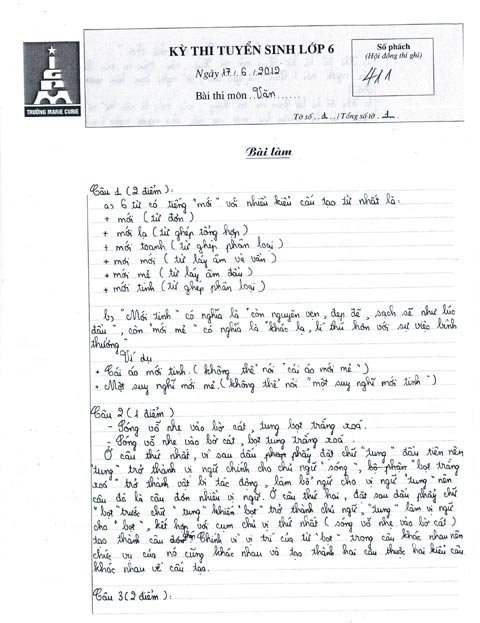 IGPM
TRƯỜNG MARIE CURIE
KỲ THI TUYỂN SINH LỚP 6
Ngày 17./.6./.2012
Bài thi môn .Văn......
Số phách
(Hội đồng thi ghi)
411
Tờ số ..1.../Tổng số tờ .1..
Bài làm
Câu 1 (2 điểm):
a) 6 từ có tiếng "mới" với nhiều kiểu cấu tạo từ nhất là:
+ mới (từ đơn)
+ mới lạ (từ ghép tổng hợp)
+ mới toanh (từ ghép phân loại)
+ mơi mới (từ láy âm và vần)
+ mới mẻ (từ láy âm đầu)
+ mới tinh (từ ghép phân loại)
b) "Mới tinh" có nghĩa là "còn nguyên vẹn, đẹp đẽ, sạch sẽ như lúc
đầu", còn "mới mẻ" có nghĩa là "khác lạ, lí thú hơn với sự việc bình
thường"
Ví dụ
+ Cái áo mới tinh. (không thể nói "cái áo mới mẻ")
+ Một suy nghĩ mới mẻ. (không thể nói "một suy nghĩ mới tinh")
Câu 2 (1 điểm)
- Sóng vỗ nhẹ vào bờ cát, tung bọt trắng xoá.
- Sóng vỗ nhẹ vào bờ cát, bọt tung trắng xoá.
Ở câu thứ nhất, vì sau dấu phẩy đặt chữ "tung" đầu tiên nên
"tung" trở thành vị ngữ chính cho chủ ngữ "sóng", bộ phận "bọt trắng
xoá" trở thành vật bị tác động, làm bổ ngữ cho vị ngữ "tung" nên
câu đó là câu đơn nhiều vị ngữ. Ở câu thứ hai, đặt sau dấu phẩy chữ
"bọt" trước chữ "tung" khiến "bọt" trở thành chủ ngữ, "tung" làm vị ngữ
cho "bọt", kết hợp với cụm chủ vị thứ nhất (sóng vỗ nhẹ vào bờ cát)
tạo thành câu ghép. Chính vì vị trí của từ "bọt" trong câu khác nhau nên
chức vụ của nó cũng khác nhau và tạo thành hai câu thuộc hai kiểu câu
khác nhau về cấu tạo.
Câu 3 (2 điểm):